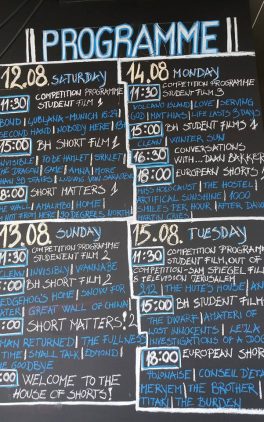 PROGRAMME
12.08. SATURDAY
11:30 COMPETITION PROGRAMME
STUDENT FILM 1
BOND | LJUBLJANA - MUNICH 15:27
SECOND HAND | NOBODY HERE
15:00 BH SHORT FILM 1
INVISIBLE | TO BE HAMLET
GAME | ANNA | MORE
SHORT MATTERS 1
THE WALL | AMALIMBO | HOME
NOT FROM HERE | 90 DEGREES NORTH
13.08 SUNDAY
11:30 COMPETITION PROGRAMME
STUDENT FILM 2
CLEAN | INVISIBLY | WANNABE
BH SHORT FILM 2
HEDGEHOG'S HOME | SNOW FOR
WATER | GREAT WALL OF CHINA
SHORT MATTERS! 2
MAN RETURNED | THE FULLNESS
TIME | SMALL TALK | EDMOND
THE GOODBYE
WELCOME TO THE
HOUSE OF SHORTS!
14.08 MONDAY
11:30 COMPETITION PROGRAMME
STUDENT FILM 3
VOLCANO ISLAND | LOVE | SERVING
GOD | MATTHIAS | LIFE LASTS 3 DAYS
15:00 BH STUDENT FILMS 1
CLEAN | WINTER SUN
16:30 CONVERSATIONS
WITH...DAAN BAKKER
18:00 EUROPEAN SHORTS
MISS HOLOCAUST | THE HOSTEL
ARTIFICIAL SUNSHINE | 1000
SMILES PER HOUR | AFTER, DAWN
MARTIN CRIES
15.08. TUESDAY
11:30 COMPETITION PROGRAM
STUDENT FILM, OUT OF
COMPETITION - SAM SPIEGEL FILM
& TELEVISION JERUSALEM
THE MUTE'S HOUSE | AN
15:00 BH STUDENT FILM
THE DWARF | AMATERI OF
LOST INNOCENTS | LEJLA
INVESTIGATIONS OF A DOG
18:00 EUROPEAN SHOR
POLONAISE | CONSEIL D'ETA
MERYEM | THE BROTHER
TITAN | THE BURDEN